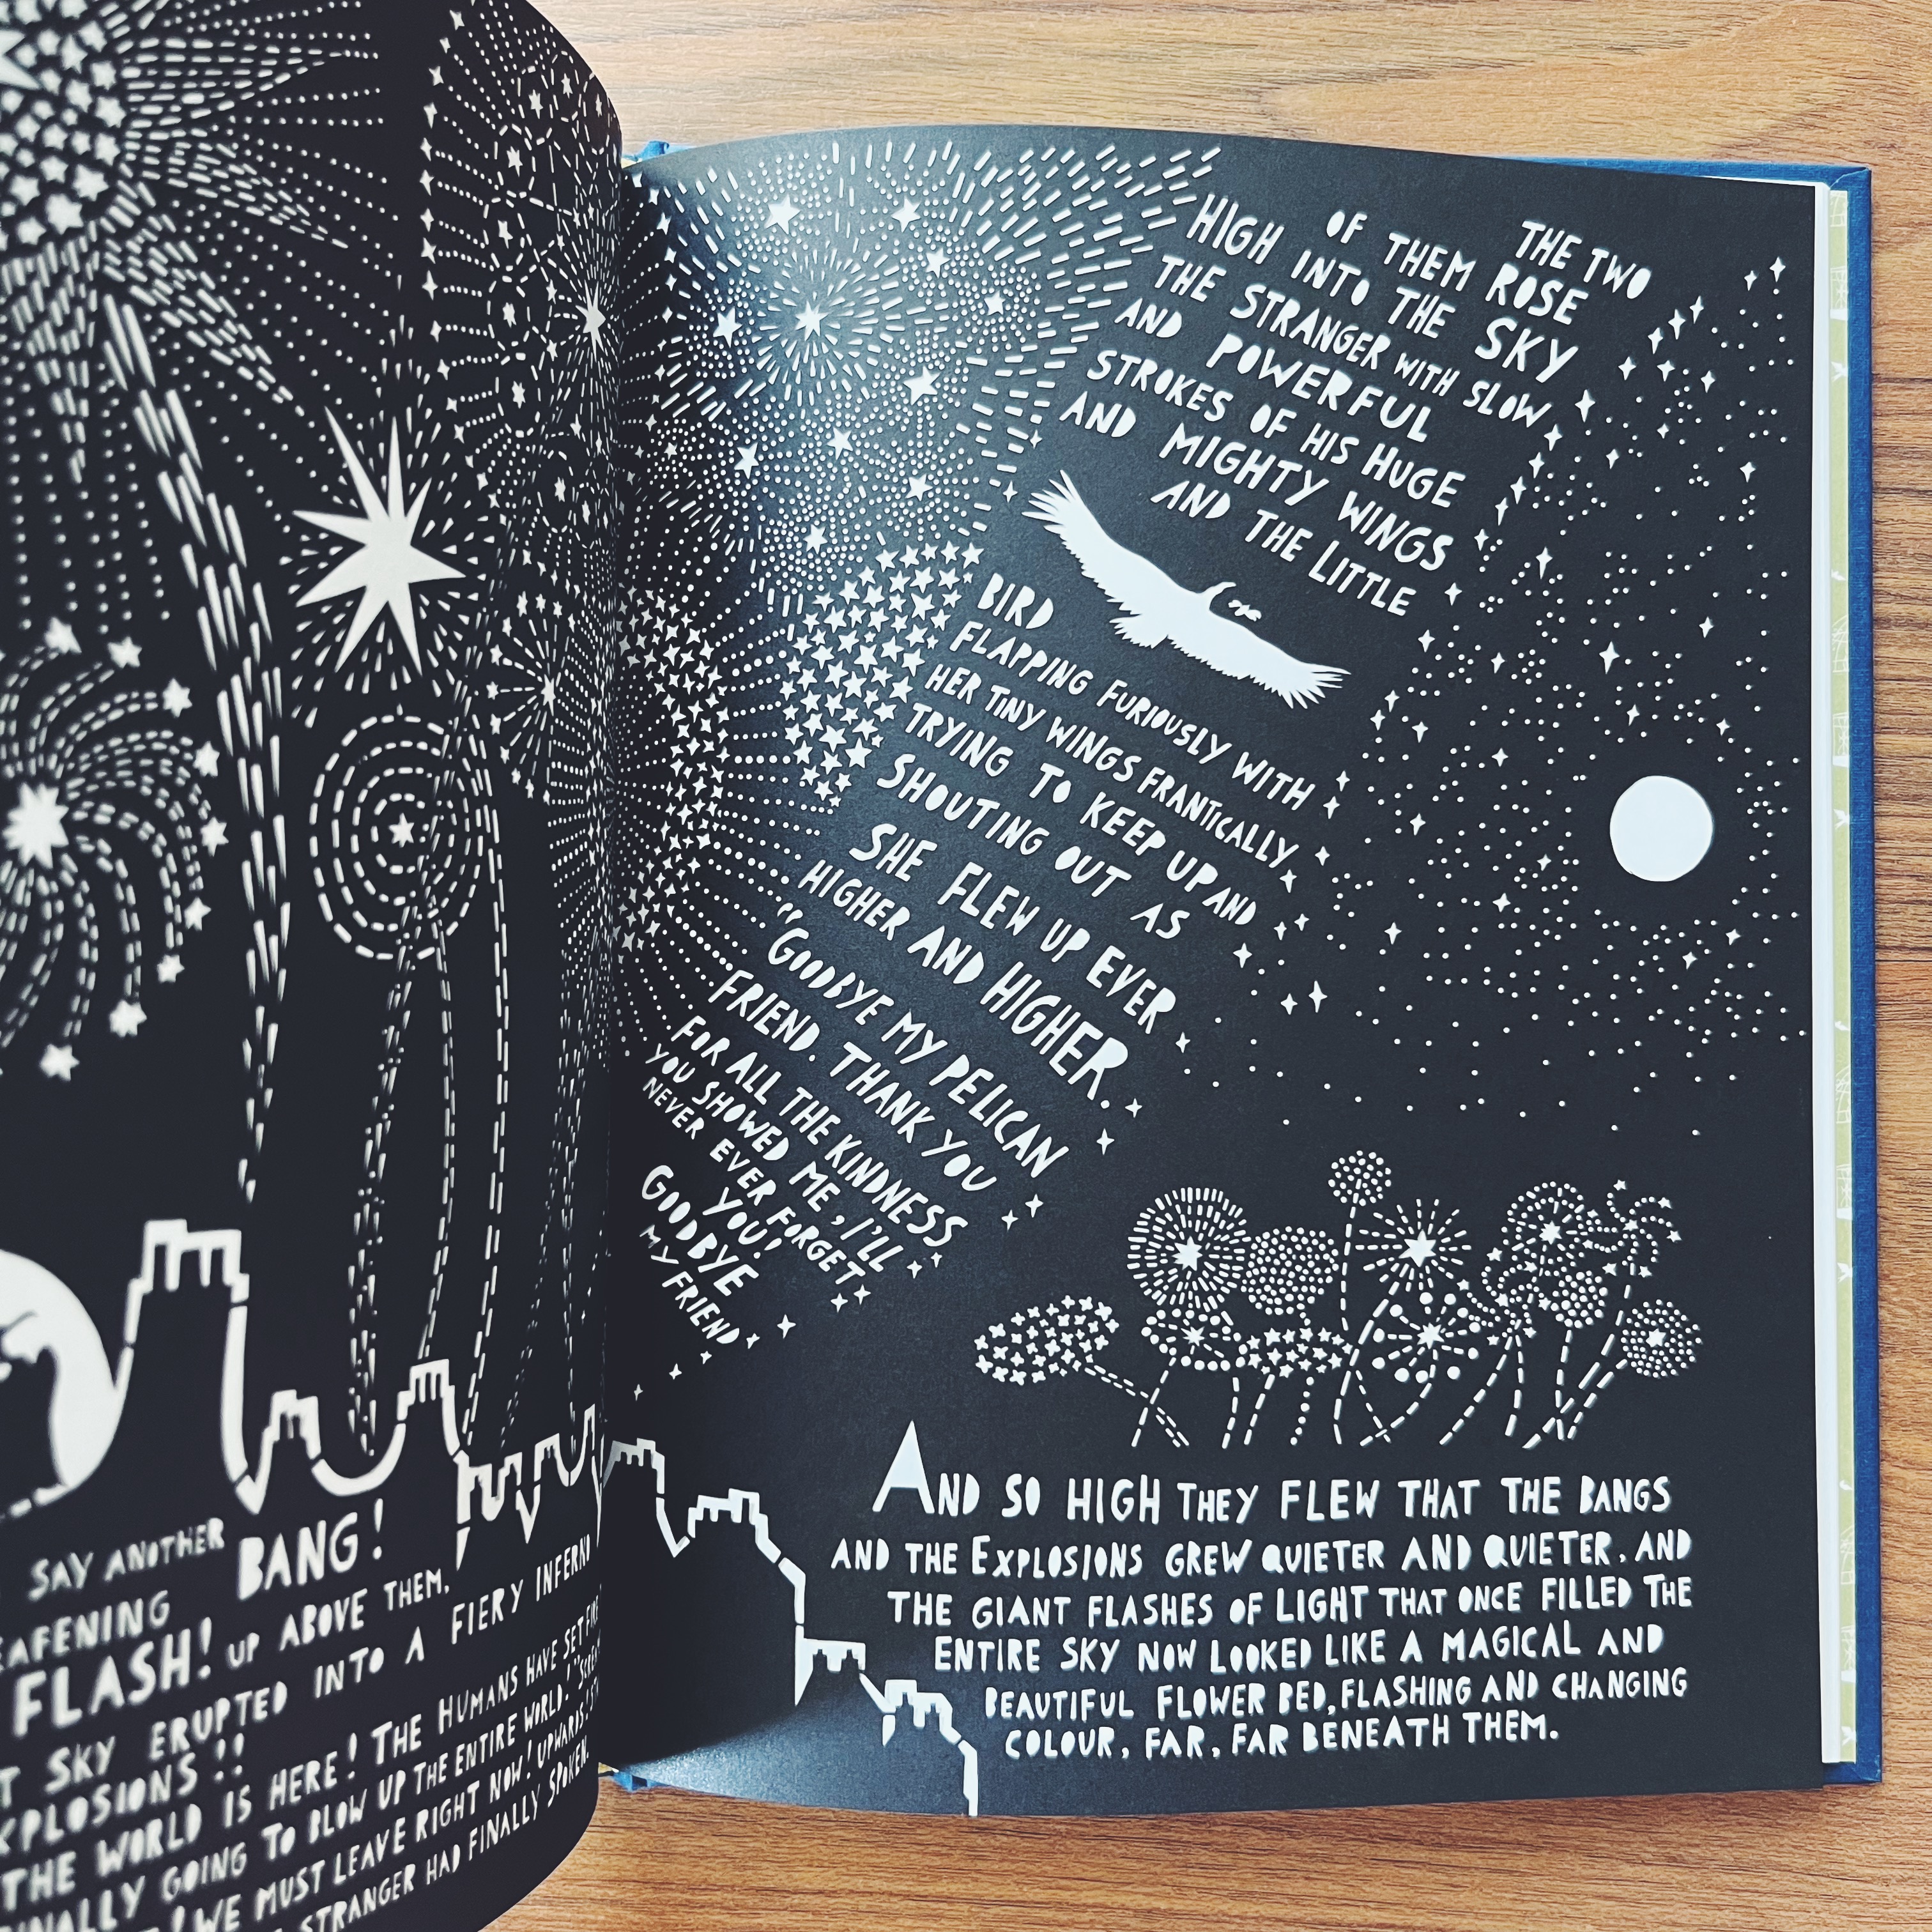 SAY ANOTHER
BANG!
FLASH! UP ABOVE THEM,
SKY ERUPTED INTO A FIERY INFERNO
THE WORLD IS HERE! THE HUMANS HAVE SET FIRE
GOING TO BLOW UP THE ENTIRE WORLD!
WE MUST LEAVE RIGHT NOW! UPWARDS!
STRANGER HAD FINALLY SPOKEN.
THE TWO
OF THEM ROSE
HIGH INTO THE SKY
THE STRANGER WITH SLOW
AND POWERFUL
STROKES OF HIS HUGE
AND MIGHTY WINGS
AND THE LITTLE
BIRD
FLAPPING FURIOUSLY WITH
HER TINY WINGS FRANTICALLY
TRYING TO KEEP UP AND
SHOUTING OUT AS
SHE FLEW UP EVER
HIGHER AND HIGHER.
"GOODBYE MY PELICAN
FRIEND. THANK YOU
FOR ALL THE KINDNESS
YOU SHOWED ME, I'LL
NEVER EVER FORGET
YOU!
GOODBYE
MY FRIEND
AND SO HIGH THEY FLEW THAT THE BANGS
AND THE EXPLOSIONS GREW QUIETER AND QUIETER, AND
THE GIANT FLASHES OF LIGHT THAT ONCE FILLED THE
ENTIRE SKY NOW LOOKED LIKE A MAGICAL AND
BEAUTIFUL FLOWER BED, FLASHING AND CHANGING
COLOUR, FAR, FAR BENEATH THEM.